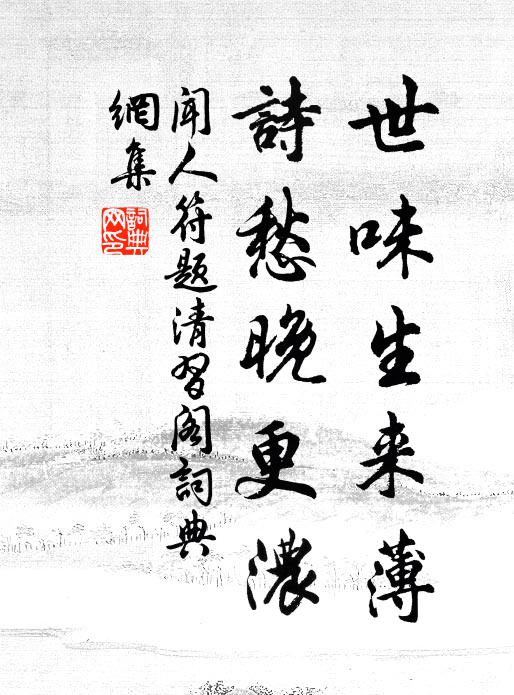 世味生来薄
詩愁晚更濃
聞人符題清習閣詞典
網集
詞典
网印